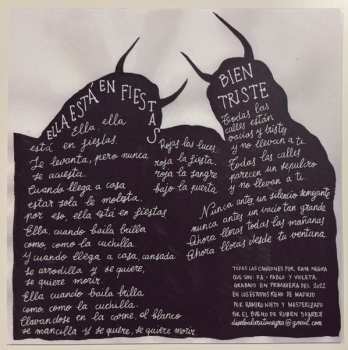 ELLA ESTÁ EN FIESTAS
Ella, ella
está en fiestas.
Se levanta, pero nunca
se acuesta.
Cuando llega a casa
estar sola le molesta,
por eso, ella está en fiestas
Ella, cuando baila brilla
como, como la cuchilla.
Y cuando llega a casa, cansada
se arrodilla y se quiere,
se quiere morir.
Ella cuando baila brilla
como como la cuchilla.
Clavándose en la carne, el blanco
se mancilla y se quiere, se quiere morir
Rojas las luces
roja la fiesta
roja la sangre
bajo la puerta.
BIEN
TRISTE
Todas las
calles están
vacías y tristes
y no llevan a ti.
Todas las calles
parecen un sepulcro
y no llevan a ti.
Nunca antes un silencio semejante
nunca antes un vacío tan grande
Ahora lloras todas las mañanas
Ahora lloras desde tu ventana.
TODAS LAS CANCIONES POR RAMA NEGRA
QUE SON: RA - PABLO Y VIOLETA.
GRABADO EN PRIMAVERA DEL 2022
EN LOS ESTUDIOS RENO DE MADRID
POR RAMIRO NIETO Y MASTERIZADO
POR EL BUENO DE RUBÉN SUÁREZ
@gmail.com